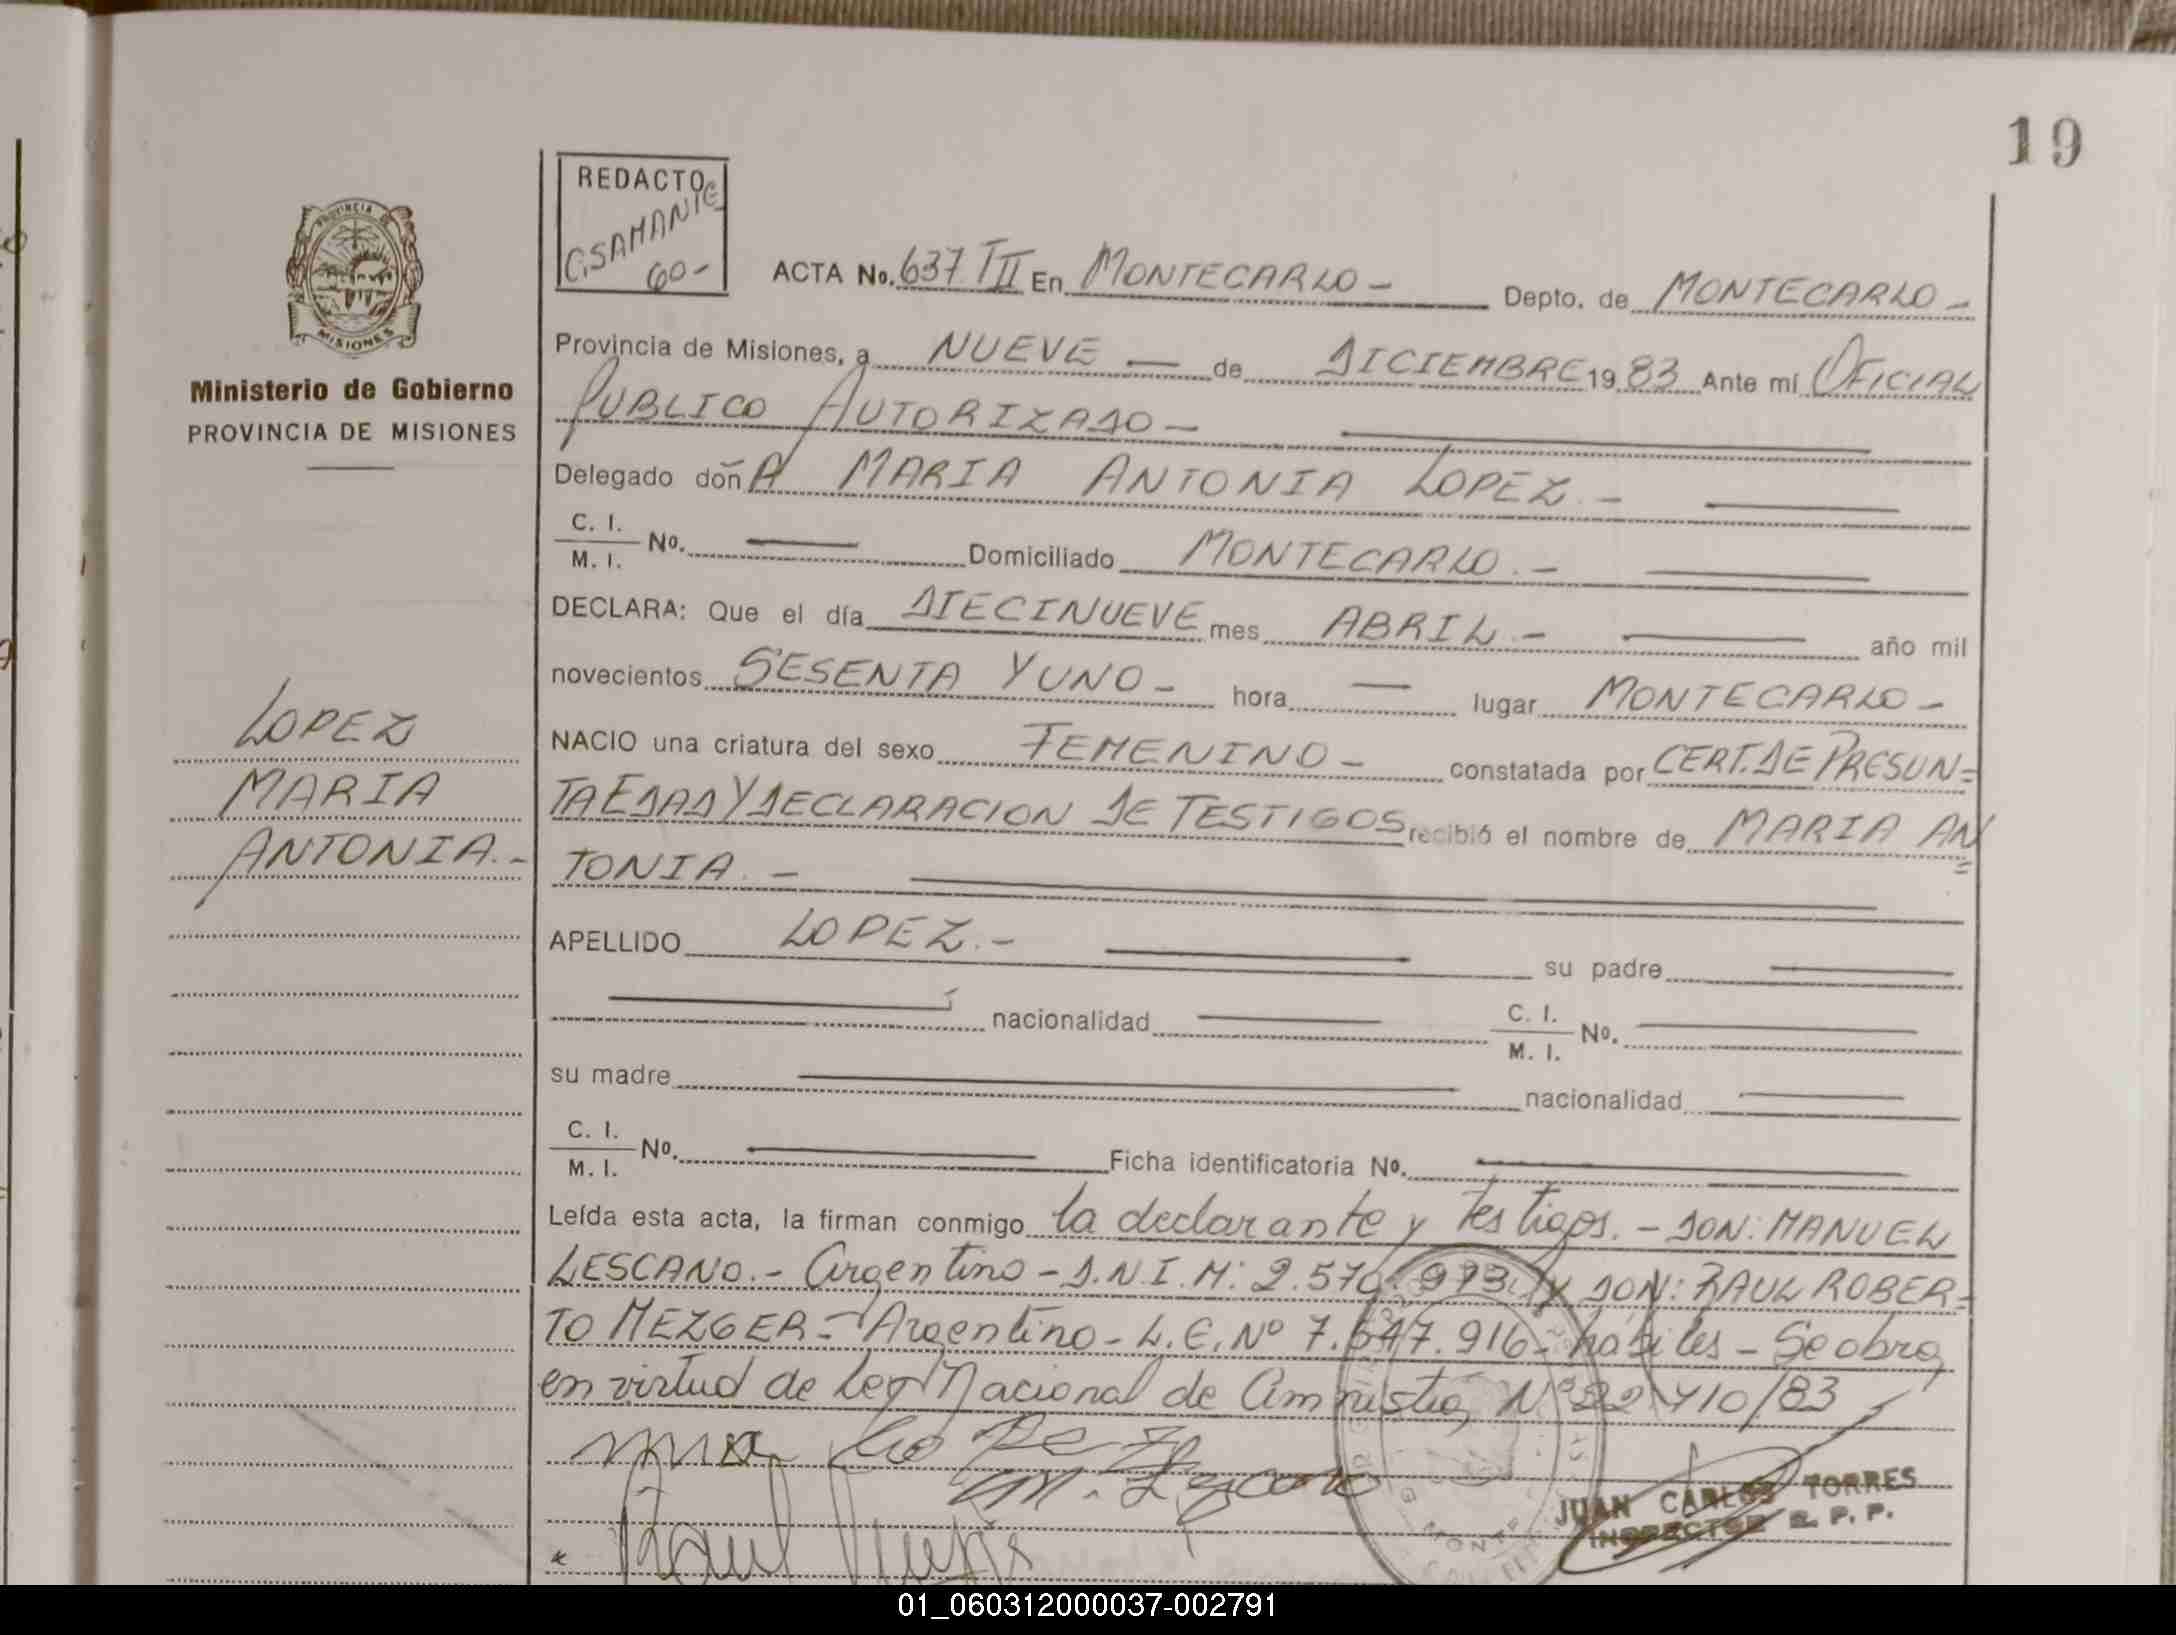 19
REDACTO
C. SAMANIE
GO-
PROVINCIA DE
MISIONES
Ministerio de Gobierno
PROVINCIA DE MISIONES
LOPEZ
MARIA
ANTONIA.-
ACTA No. 637 TII En MONTECARLO - Depto. de MONTECARLO -
Provincia de Misiones, a NUEVE — de DICIEMBRE 1983 Ante mí OFICIAL
PUBLICO AUTORIZADO -
Delegado doñA MARIA ANTONIA LOPEZ. -
C. I.
M. I. No. — Domiciliado MONTECARLO. -
DECLARA: Que el día DIECINUEVE mes ABRIL. - año mil
novecientos SESENTA Y UNO - hora — lugar MONTECARLO -
NACIO una criatura del sexo FEMENINO - constatada por CERT. DE PRESUN=
TA EDAD Y DECLARACION DE TESTIGOS recibió el nombre de MARIA AN=
TONIA. -
APELLIDO LOPEZ. - su padre
nacionalidad C. I.
M. I. No.
su madre nacionalidad
C. I.
M. I. No. Ficha identificatoria No.
Leída esta acta, la firman conmigo la declarante y testigos. - DON: MANUEL
LESCANO. - Argentino - D.N.I.M: 2.570.973 y DON: RAUL ROBER-
TO MEZGER - Argentino - L.E. Nº 7.647.916 - hábiles - Se obra
en virtud de Ley Nacional de Amnistia Nº 22.410/83
JUAN CARLOS TORRES
INSPECTOR R. P. P.
01_060312000037-002791